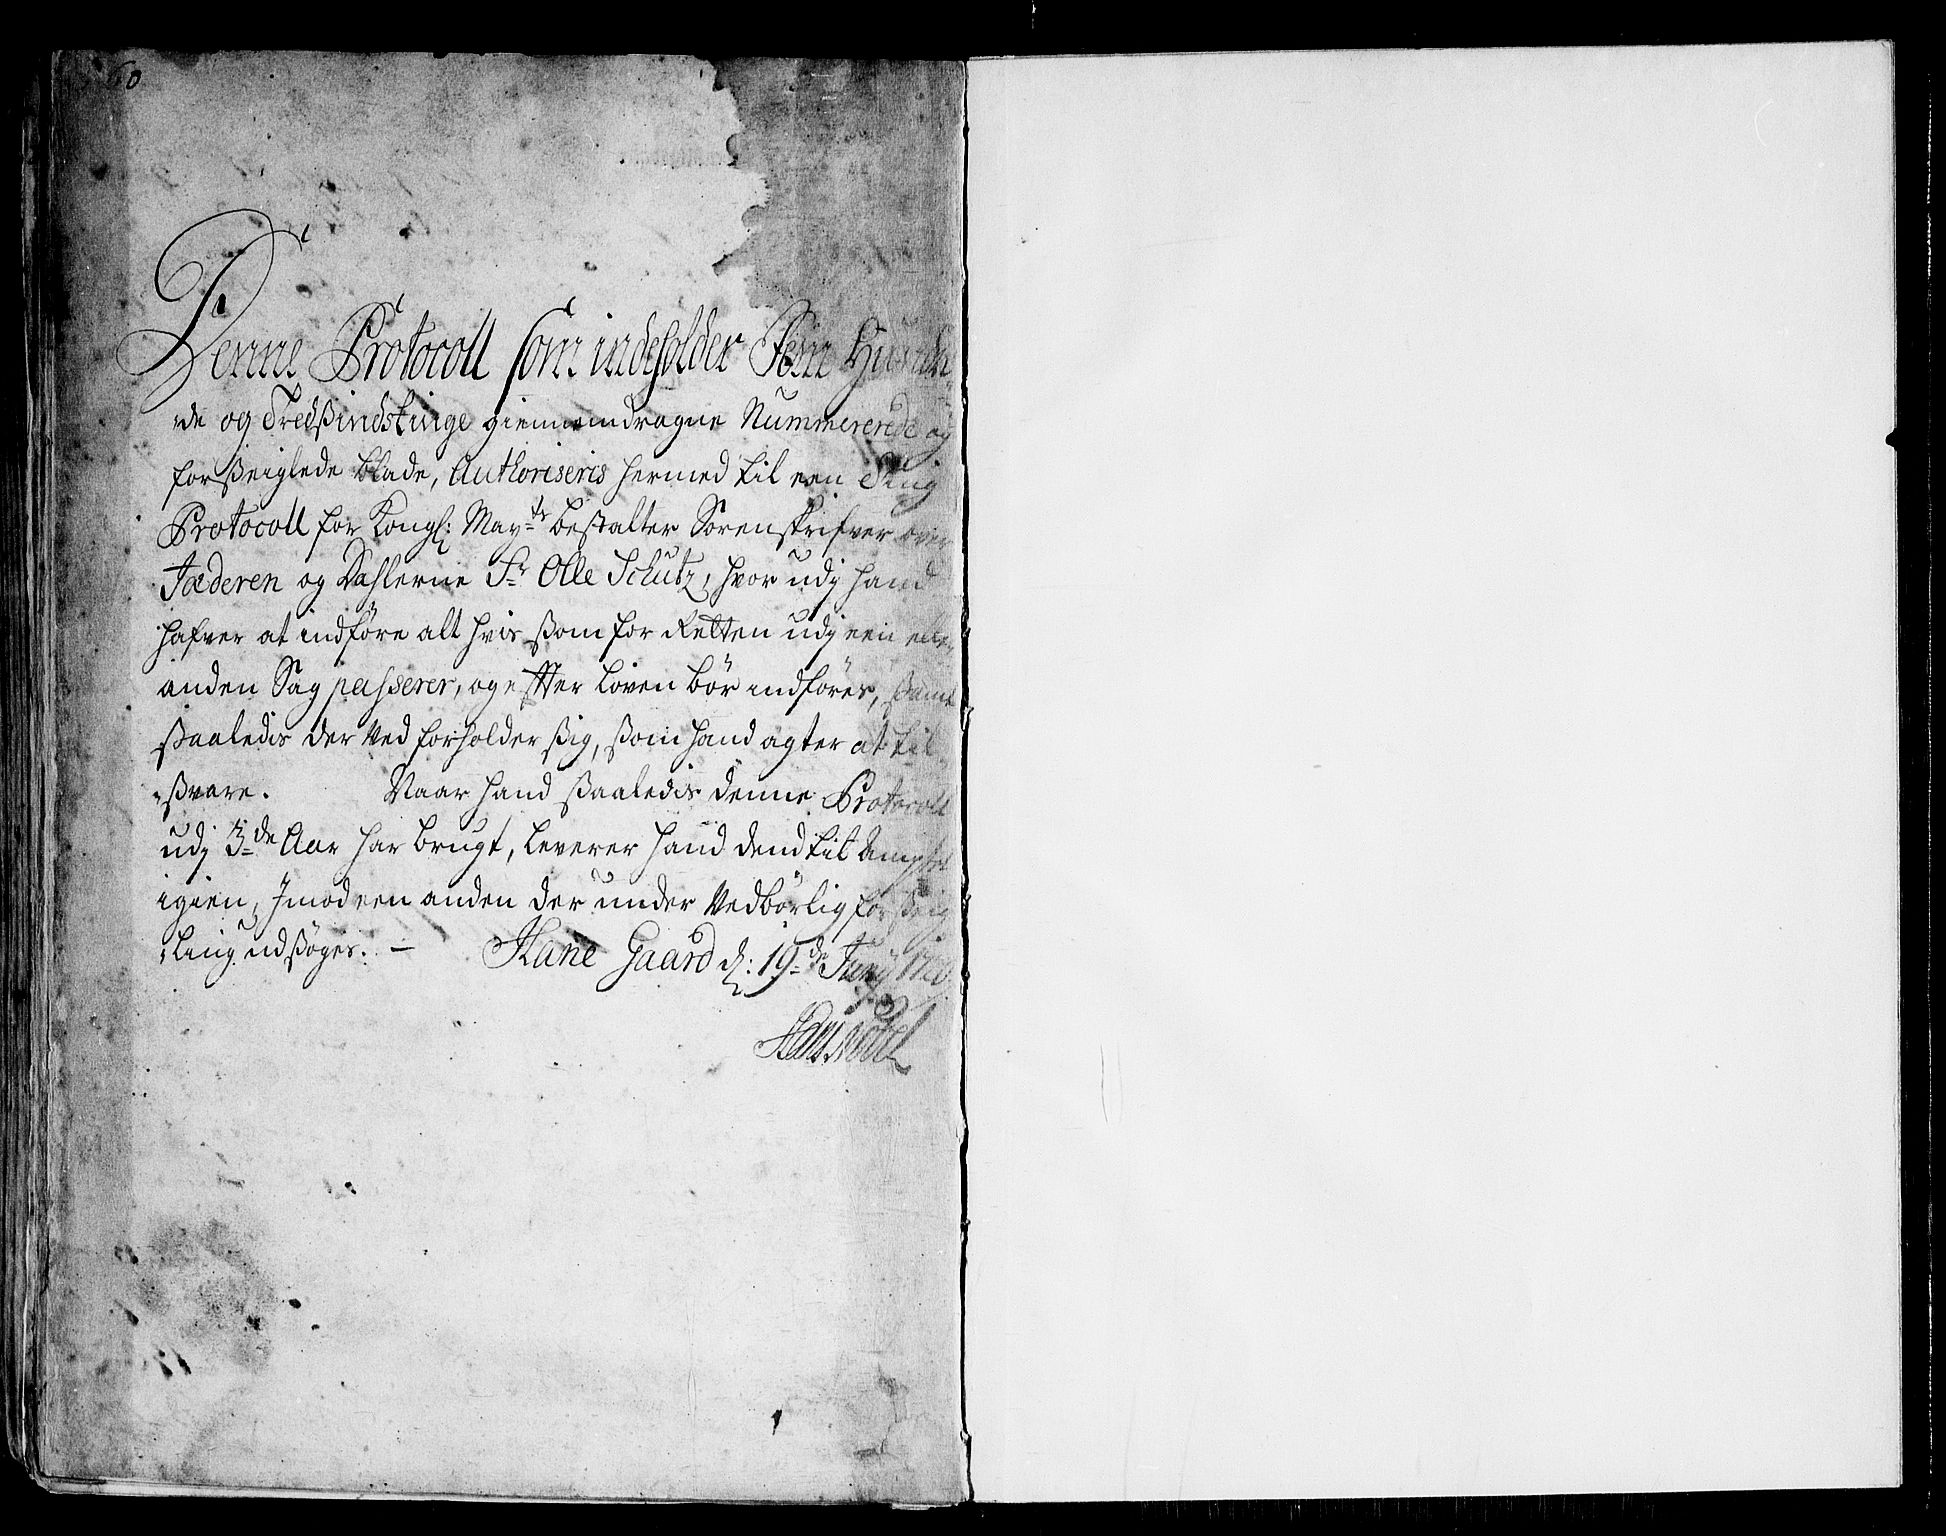 60
Denne Protocoll som indeholder Fem Hund-
re og Tredßindstiuge giennemdragne Nummererede og
forßeiglede blade, Authoriseris hermed til een Ting
Protocoll for Kongl: May:ts bestalter Sorenskrifver over
Jæderen og Dahlerne Sr Olle Schutz, hvor udj hand
hafver at indføre alt hvis ßom for Retten udj een eller
anden Sag passerer, og effter Loven bør indføres, ßamt
ßaaledis der Ved forholder ßig, ßom hand agter at til
ßvare. Naar hand ßaaledis denne Protocoll
udj 3de Aar har brugt, leverer hand dend til Ampted
igien, Jmod een anden der under Vedbørlig forßeig
ling udßøges. — Hane Gaard d: 19de Junij